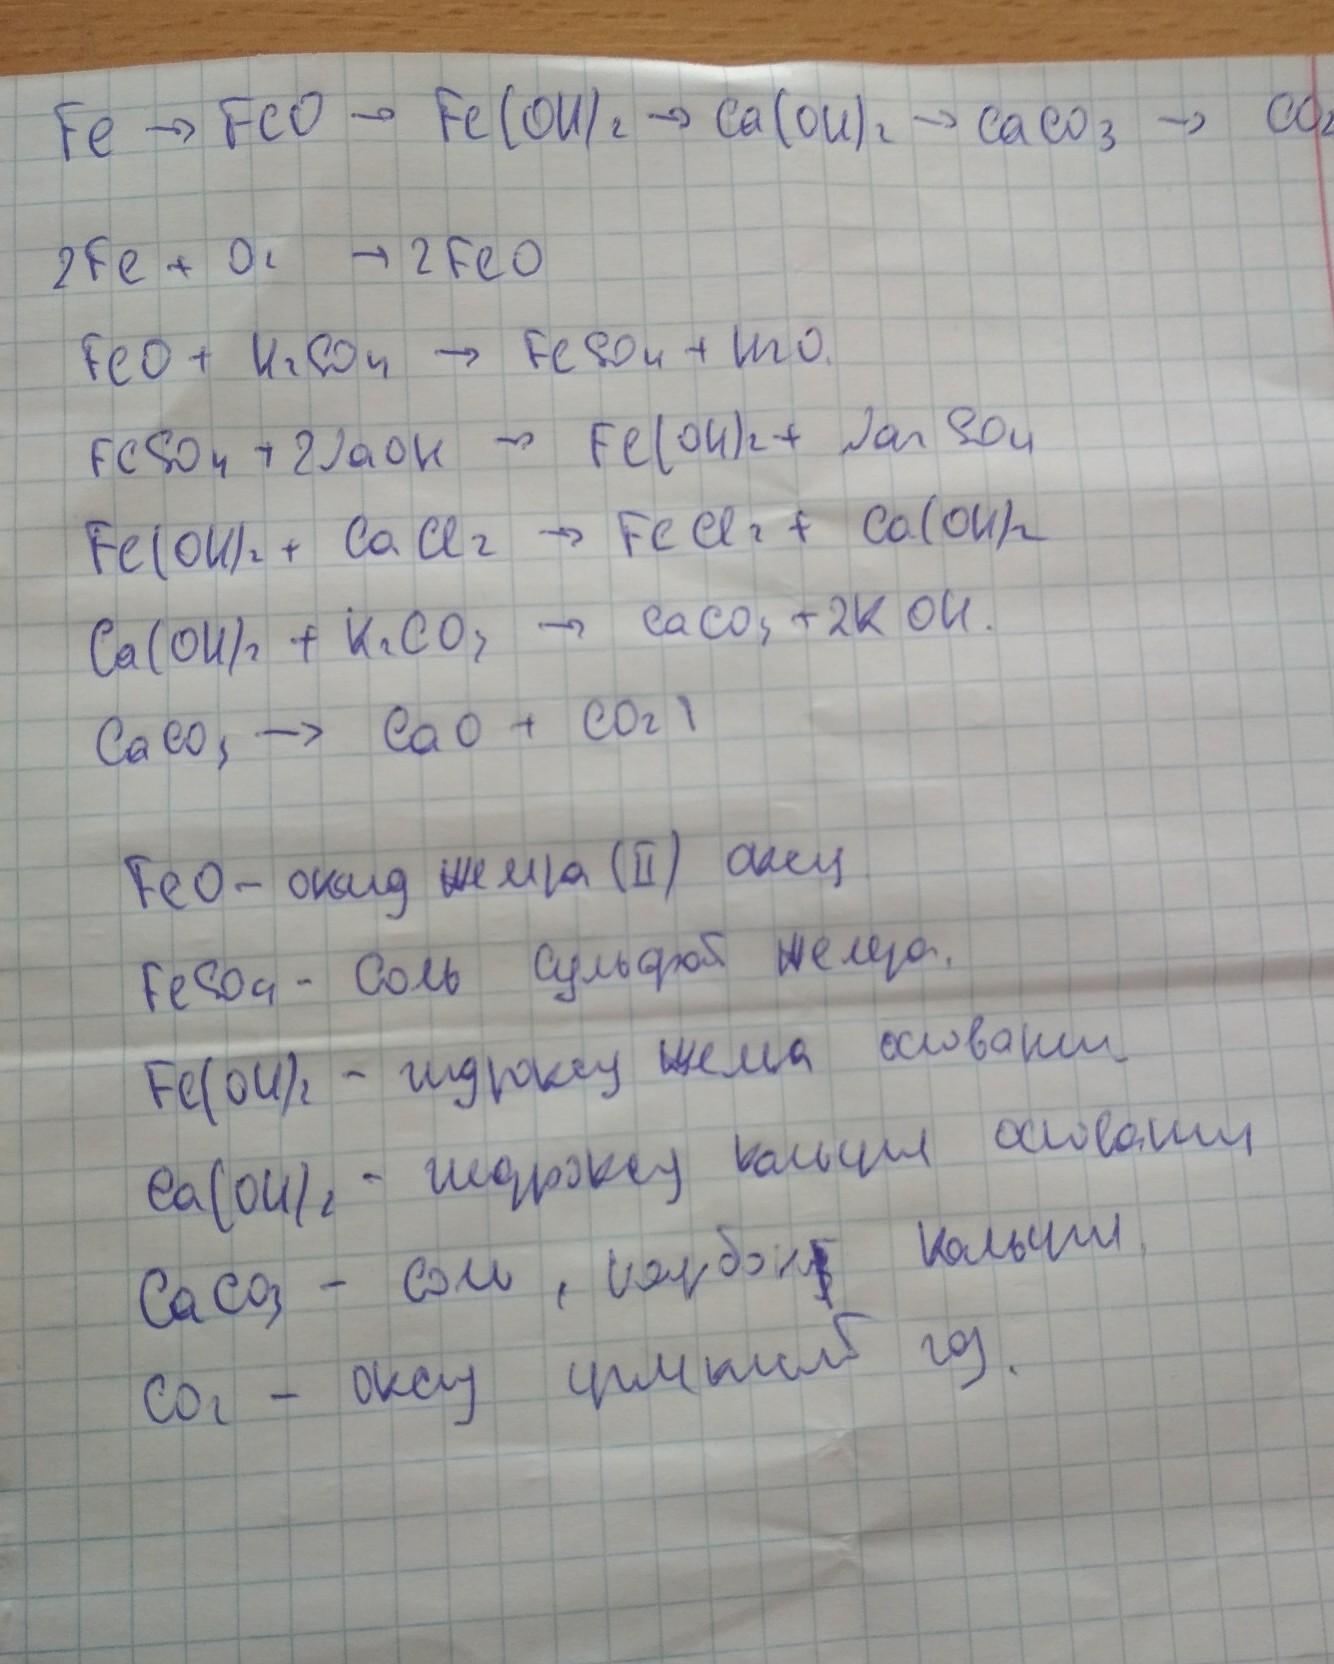 Fe → FeO → Fe(OH)₂ → Ca(OH)₂ → CaCO₃ → CO₂
2Fe + O₂ → 2FeO
FeO + H₂SO₄ → FeSO₄ + H₂O.
FeSO₄ + 2NaOH → Fe(OH)₂ + Na₂SO₄
Fe(OH)₂ + CaCl₂ → FeCl₂ + Ca(OH)₂
Ca(OH)₂ + K₂CO₃ → CaCO₃ + 2KOH.
CaCO₃ → CaO + CO₂↑
FeO - оксид железа (II) оксид
FeSO₄ - Соль сульфат железа.
Fe(OH)₂ - гидроксид железа основании
Ca(OH)₂ - гидроксид кальция основании
CaCO₃ - соль, карбонат кальция.
CO₂ - оксид углекислый газ.